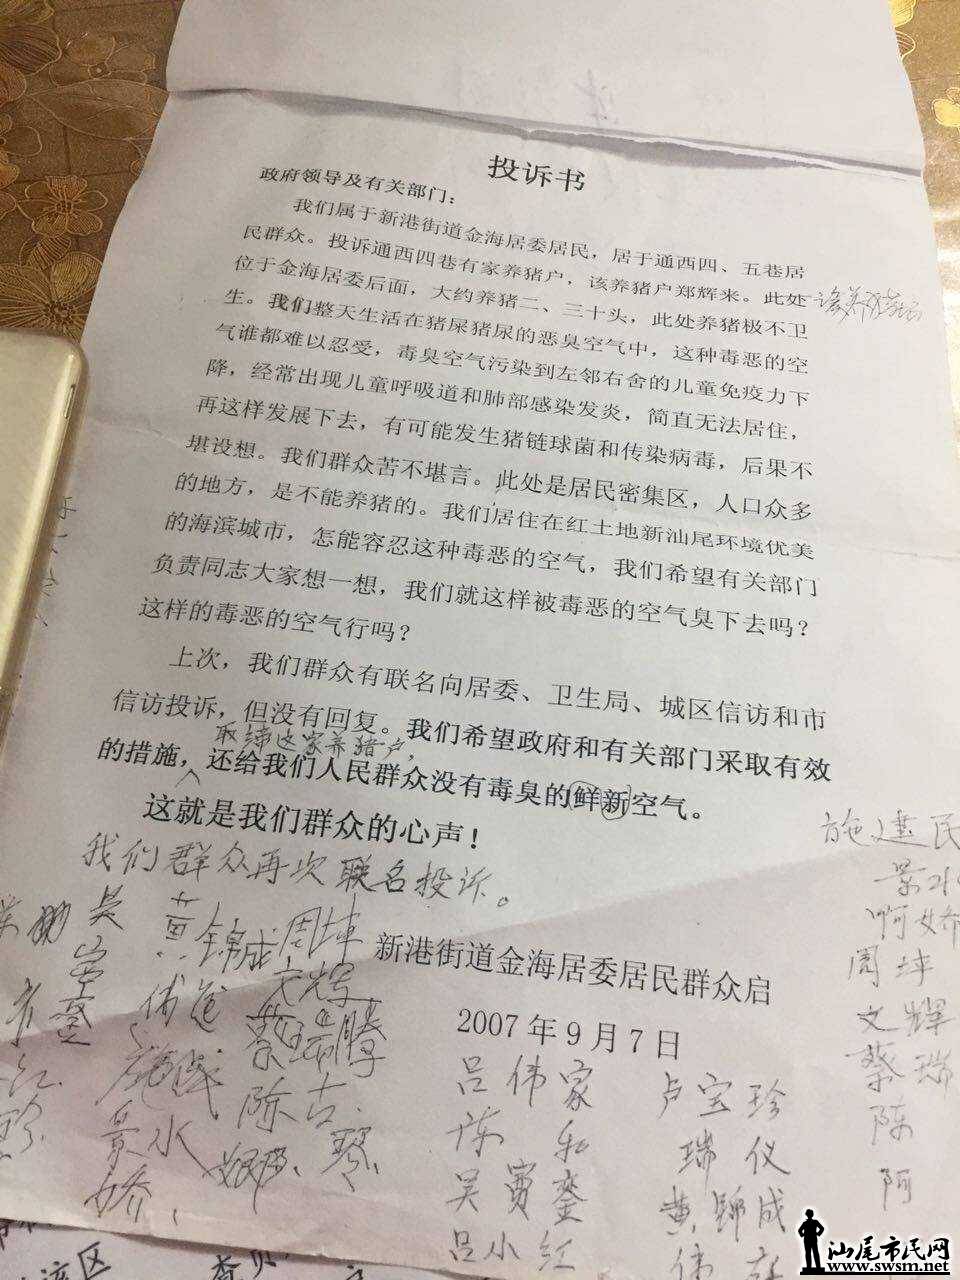 投诉书
政府领导及有关部门：
我们属于新港街道金海居委居民，居于通西四、五巷居
民群众。投诉通西四巷有家养猪户，该养猪户郑辉来。此处
位于金海居委后面，大约养猪二、三十头，此处养猪极不卫
生。我们整天生活在猪屎猪尿的恶臭空气中，这种毒恶的空
气谁都难以忍受，毒臭空气污染到左邻右舍的儿童免疫力下
降，经常出现儿童呼吸道和肺部感染发炎，简直无法居住，
再这样发展下去，有可能发生猪链球菌和传染病毒，后果不
堪设想。我们群众苦不堪言。此处是居民密集区，人口众多
的地方，是不能养猪的。我们居住在红土地新汕尾环境优美
的海滨城市，怎能容忍这种毒恶的空气，我们希望有关部门
负责同志大家想一想，我们就这样被毒恶的空气臭下去吗？
这样的毒恶的空气行吗？
上次，我们群众有联名向居委、卫生局、城区信访和市
信访投诉，但没有回复。我们希望政府和有关部门采取有效
取缔这家养猪户，
的措施，还给我们人民群众没有毒臭的鲜新空气。
这就是我们群众的心声！
我们群众再次联名投诉。
新港街道金海居委居民群众启
2007年9月7日
黄 锦成 周坤
文辉
蔡瑞腾
陈古
景水
娇
吕伟家
陈和
吴賓銮
吕小红
卢宝珍
瑞仪
黄锦成
施建民
景水
啊娇
周坤
文辉
蔡瑞
陈
阿
汕尾市民网
www.swsm.net